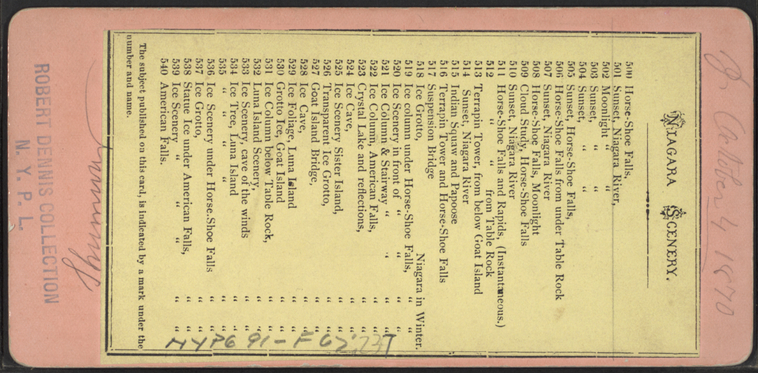 NIAGARA SCENERY.
500 Horse-Shoe Falls,
501 Sunset, Niagara River,
502 Moonlight " "
503 Sunset, " "
504 Sunset, " "
505 Sunset, Horse-Shoe Falls,
506 Horse-Shoe Falls from under Table Rock
507 Sunset, Niagara River
508 Horse-Shoe Falls, Moonlight
509 Cloud Study, Horse-Shoe Falls
510 Sunset, Niagara River
511 Horse-Shoe Falls and Rapids, (Instantaneous.)
512 " " from Table Rock
513 Terrapin Tower, from below Goat Island
514 Sunset, Niagara River
515 Indian Squaw and Papoose
516 Terrapin Tower and Horse-Shoe Falls
517 Suspension Bridge
518 Ice Grotto, Niagara in Winter.
519 Ice column under Horse-Shoe Falls, "
520 Ice Scenery in front of " " "
521 Ice Column & Stairway " " "
522 Ice Column, American Falls, "
523 Crystal Lake and reflections, "
524 Ice Cave, "
525 Ice Scenery Sister Island, "
526 Transparent Ice Grotto, "
527 Goat Island Bridge, "
528 Ice Cave, "
529 Ice Foliage, Luna Island "
530 Grotto Ice, Goat Island "
531 Ice Column below Table Rock, "
532 Luna Island Scenery, "
533 Ice Scenery, cave of the winds "
534 Ice Tree, Luna Island "
535 " " " " "
536 Ice Scenery under Horse-Shoe Falls "
537 Ice Grotto, "
538 Statue Ice under American Falls, "
539 Ice Scenery " " " "
540 American Falls. "
The subject published on this card, is indicated by a mark under the
number and name.
ROBERT DENNIS COLLECTION
N. Y. P. L